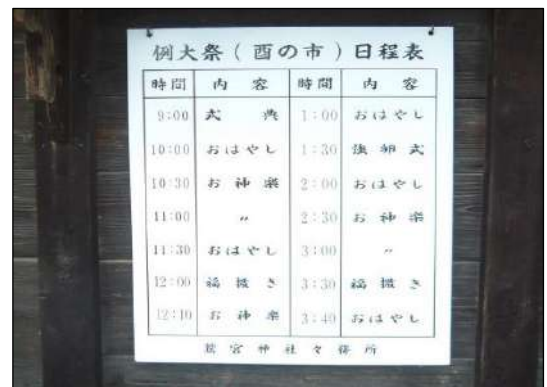 例大祭(酉の市)日程表
時間 内容 時間 内容
9:00 式典 1:00 おはやし
10:00 おはやし 1:30 強卵式
10:30 お神楽 2:00 おはやし
11:00 〃 2:30 お神楽
11:30 おはやし 3:00 〃
12:00 福撒き 3:30 福撒き
12:10 お神楽 3:40 おはやし
鷲宮神社々務所